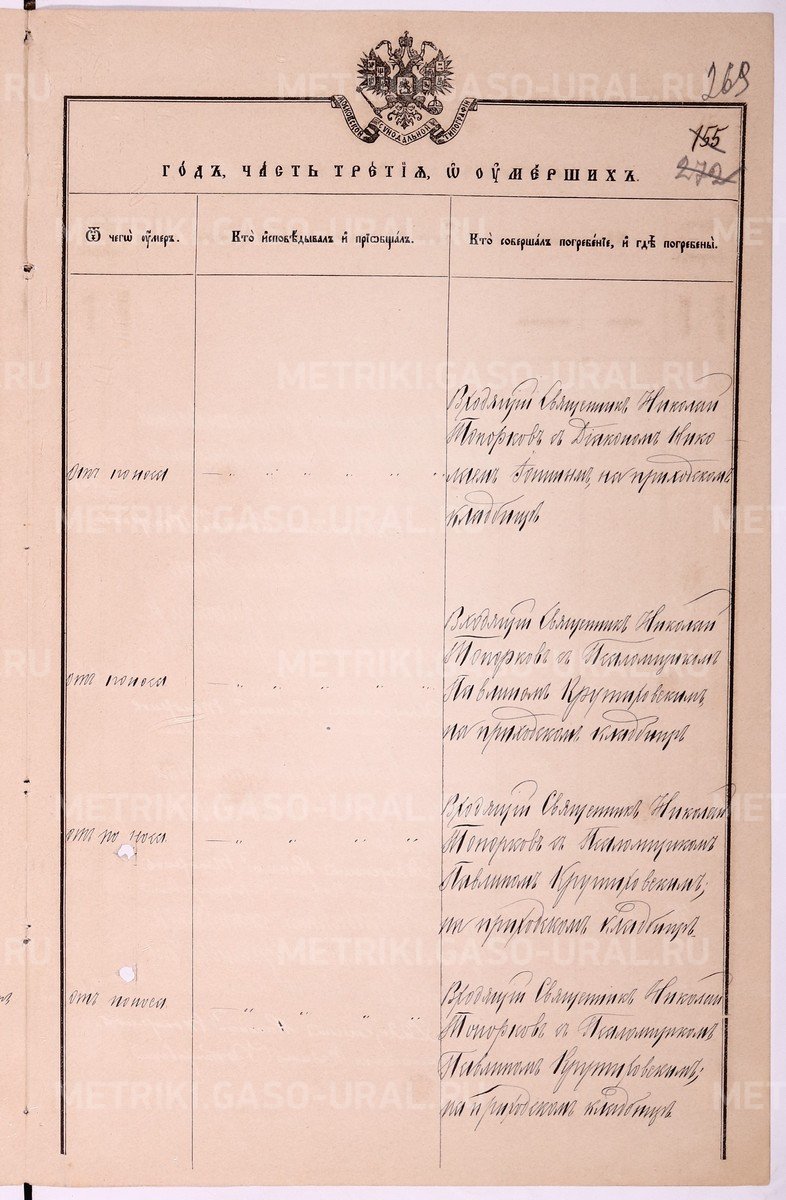 269
МОСКОВСКОЙ СУНОДАЛЬНОЙ ТИПОГРАФІИ
155
272
го́дъ, ча́сть тре́тїѧ, ѡ҆ ᲂу҆ме́ршихъ.
Ѿ чегѡ̀ ᲂу҆́меръ.
Кто̀ и҆сповѣ́дывалъ и҆ прїѻбща́лъ.
Кто̀ соверша́лъ погребе́нїе, и҆ гдѣ̀ погребены̀.
Входящій Священникъ Николай
Топорковъ съ Діакономъ Нико
отъ поноса — „ „ „ „ „ лаемъ на приходскомъ
кладбищѣ
Входящій Священникъ Николай
Топорковъ съ Псаломщикомъ
отъ поноса — „ „ „ „ „ Павлиномъ Крутиховскимъ,
на приходскомъ кладбищѣ
Входящій Священникъ Николай
отъ поноса — „ „ „ „ Топорковъ съ Псаломщикомъ
Павлиномъ Крутиховскимъ;
на приходскомъ кладбищѣ.
отъ поноса — „ „ „ „ Входящій Священникъ Николай
Топорковъ съ Псаломщикомъ
Павлиномъ Крутиховскимъ;
на приходскомъ кладбищѣ
METRIKI.GASO-URAL.RU